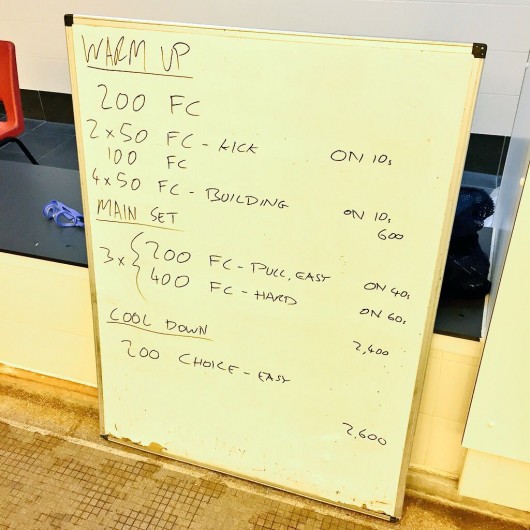 WARM UP
200 FC
2 x 50 FC - KICK ON 10s
100 FC
4 x 50 FC - BUILDING ON 10s
600
MAIN SET
3 x { 200 FC - PULL, EASY ON 40s
400 FC - HARD ON 60s
2,400
COOL DOWN
200 CHOICE - EASY
2,600